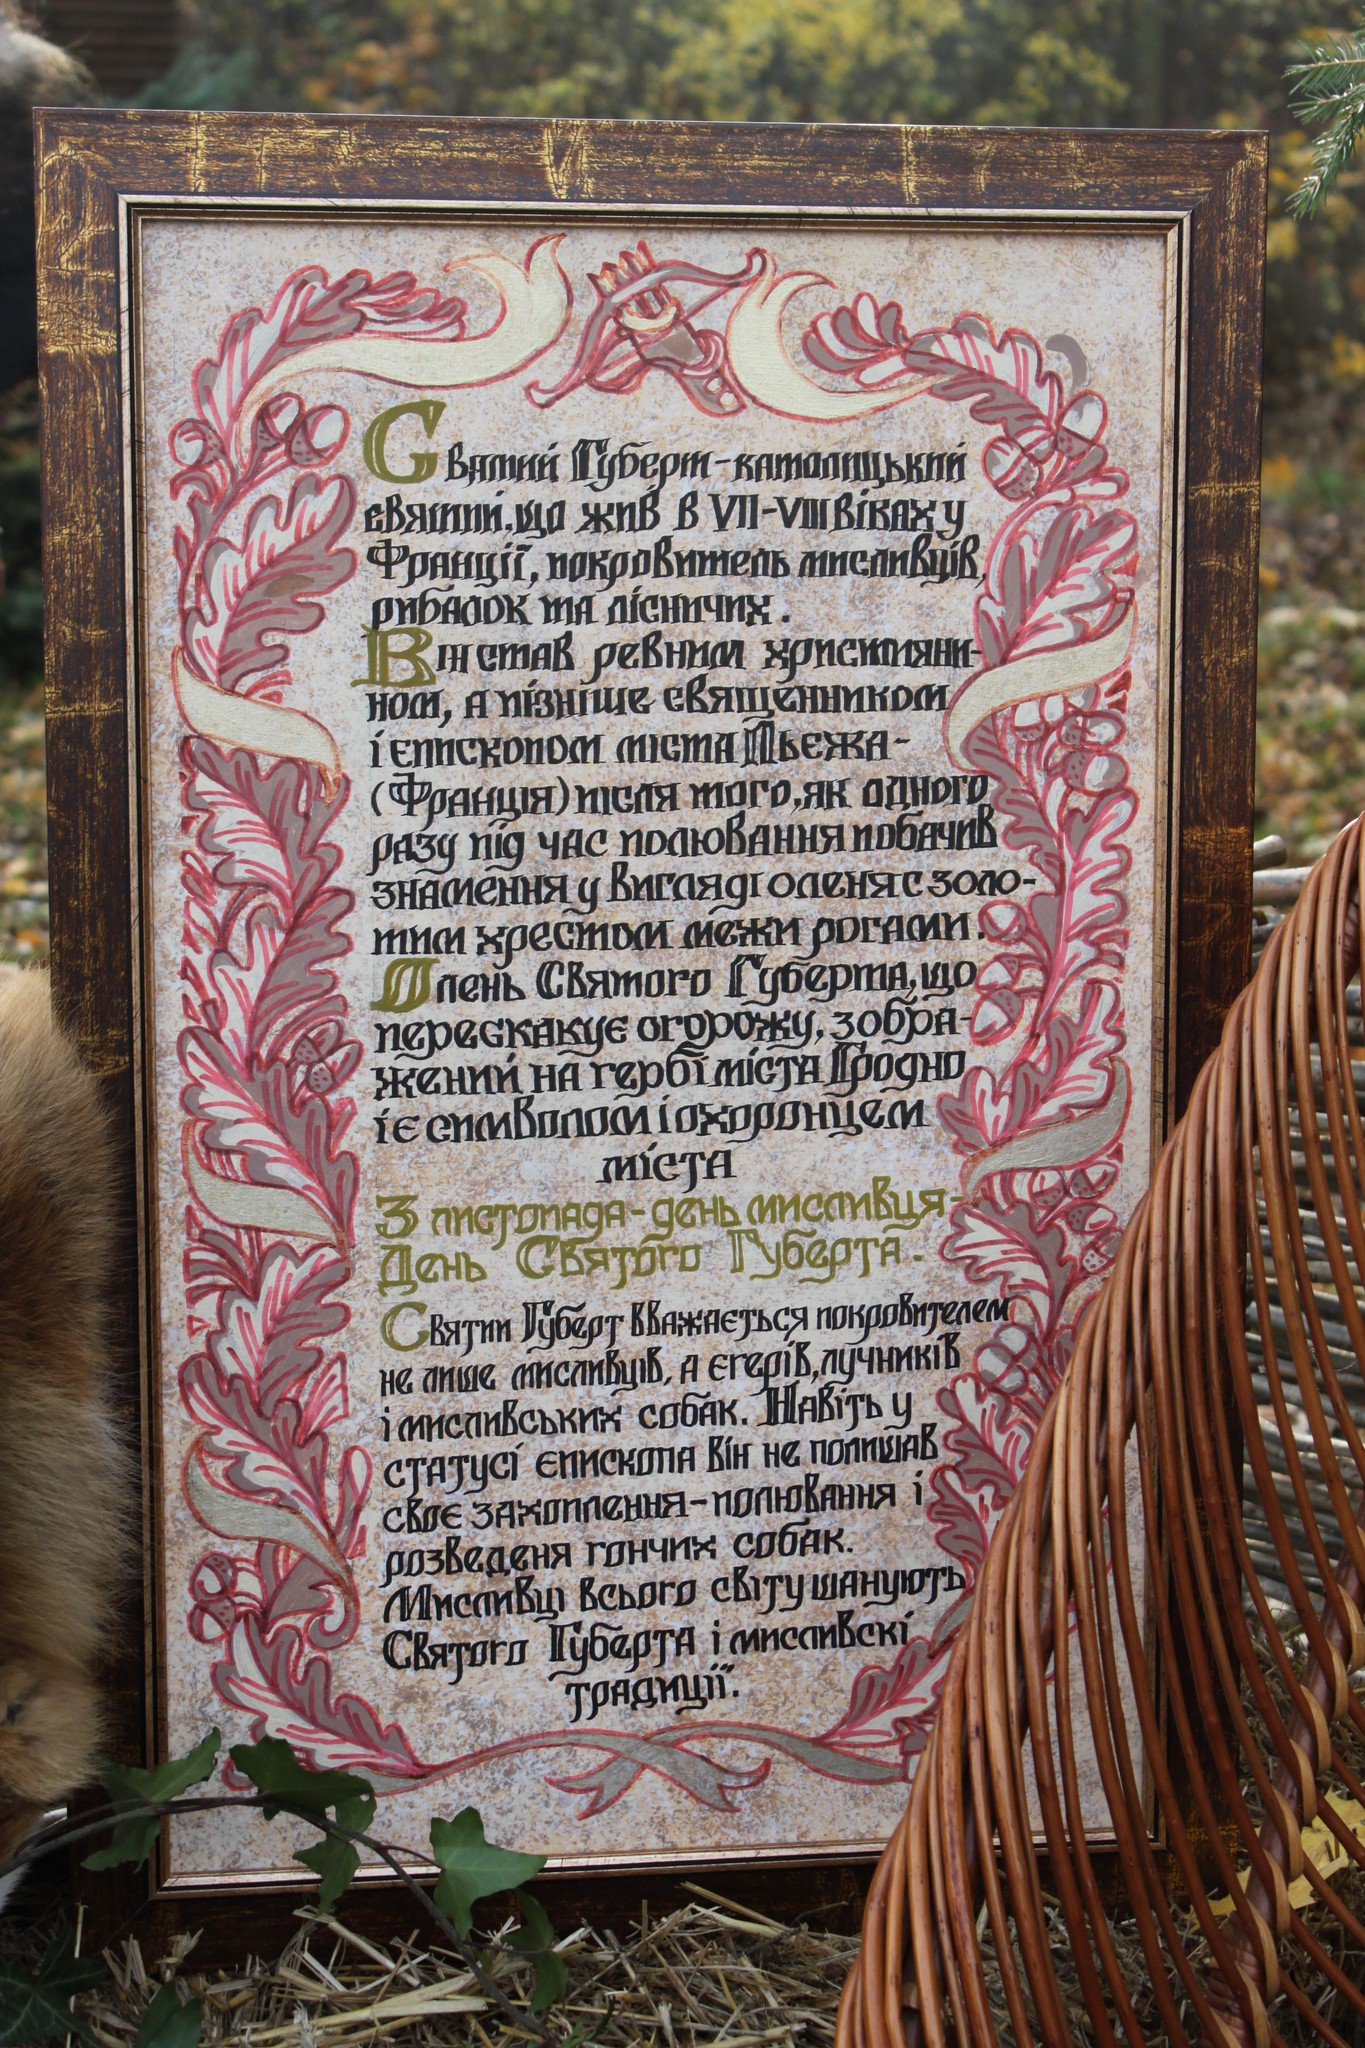 Святий Губерт-католицький
святий, що жив в VII-VIII віках у
Франції, покровитель мисливців,
рибалок та лісничих.
Він став ревним християни-
ном, а пізніше священником
і єпископом міста Льєжа-
(Франція) після того, як одного
разу під час полювання побачив
знамення у вигляді оленя с золо-
тим хрестом межи рогами.
Олень Святого Губерта, що
перескакує огорожу, зобра-
жений на гербі міста Гродно
і є символом і охоронцем
міста
3 листопада-день мисливця-
День Святого Губерта.
Святий Губерт вважається покровителем
не лише мисливців, а єгерів, лучників
і мисливських собак. Навіть у
статусі єпископа він не полишав
своє захоплення-полювання і
розведеня гончих собак.
Мисливці всього світу шанують
Святого Губерта і мисливскі
традиції".